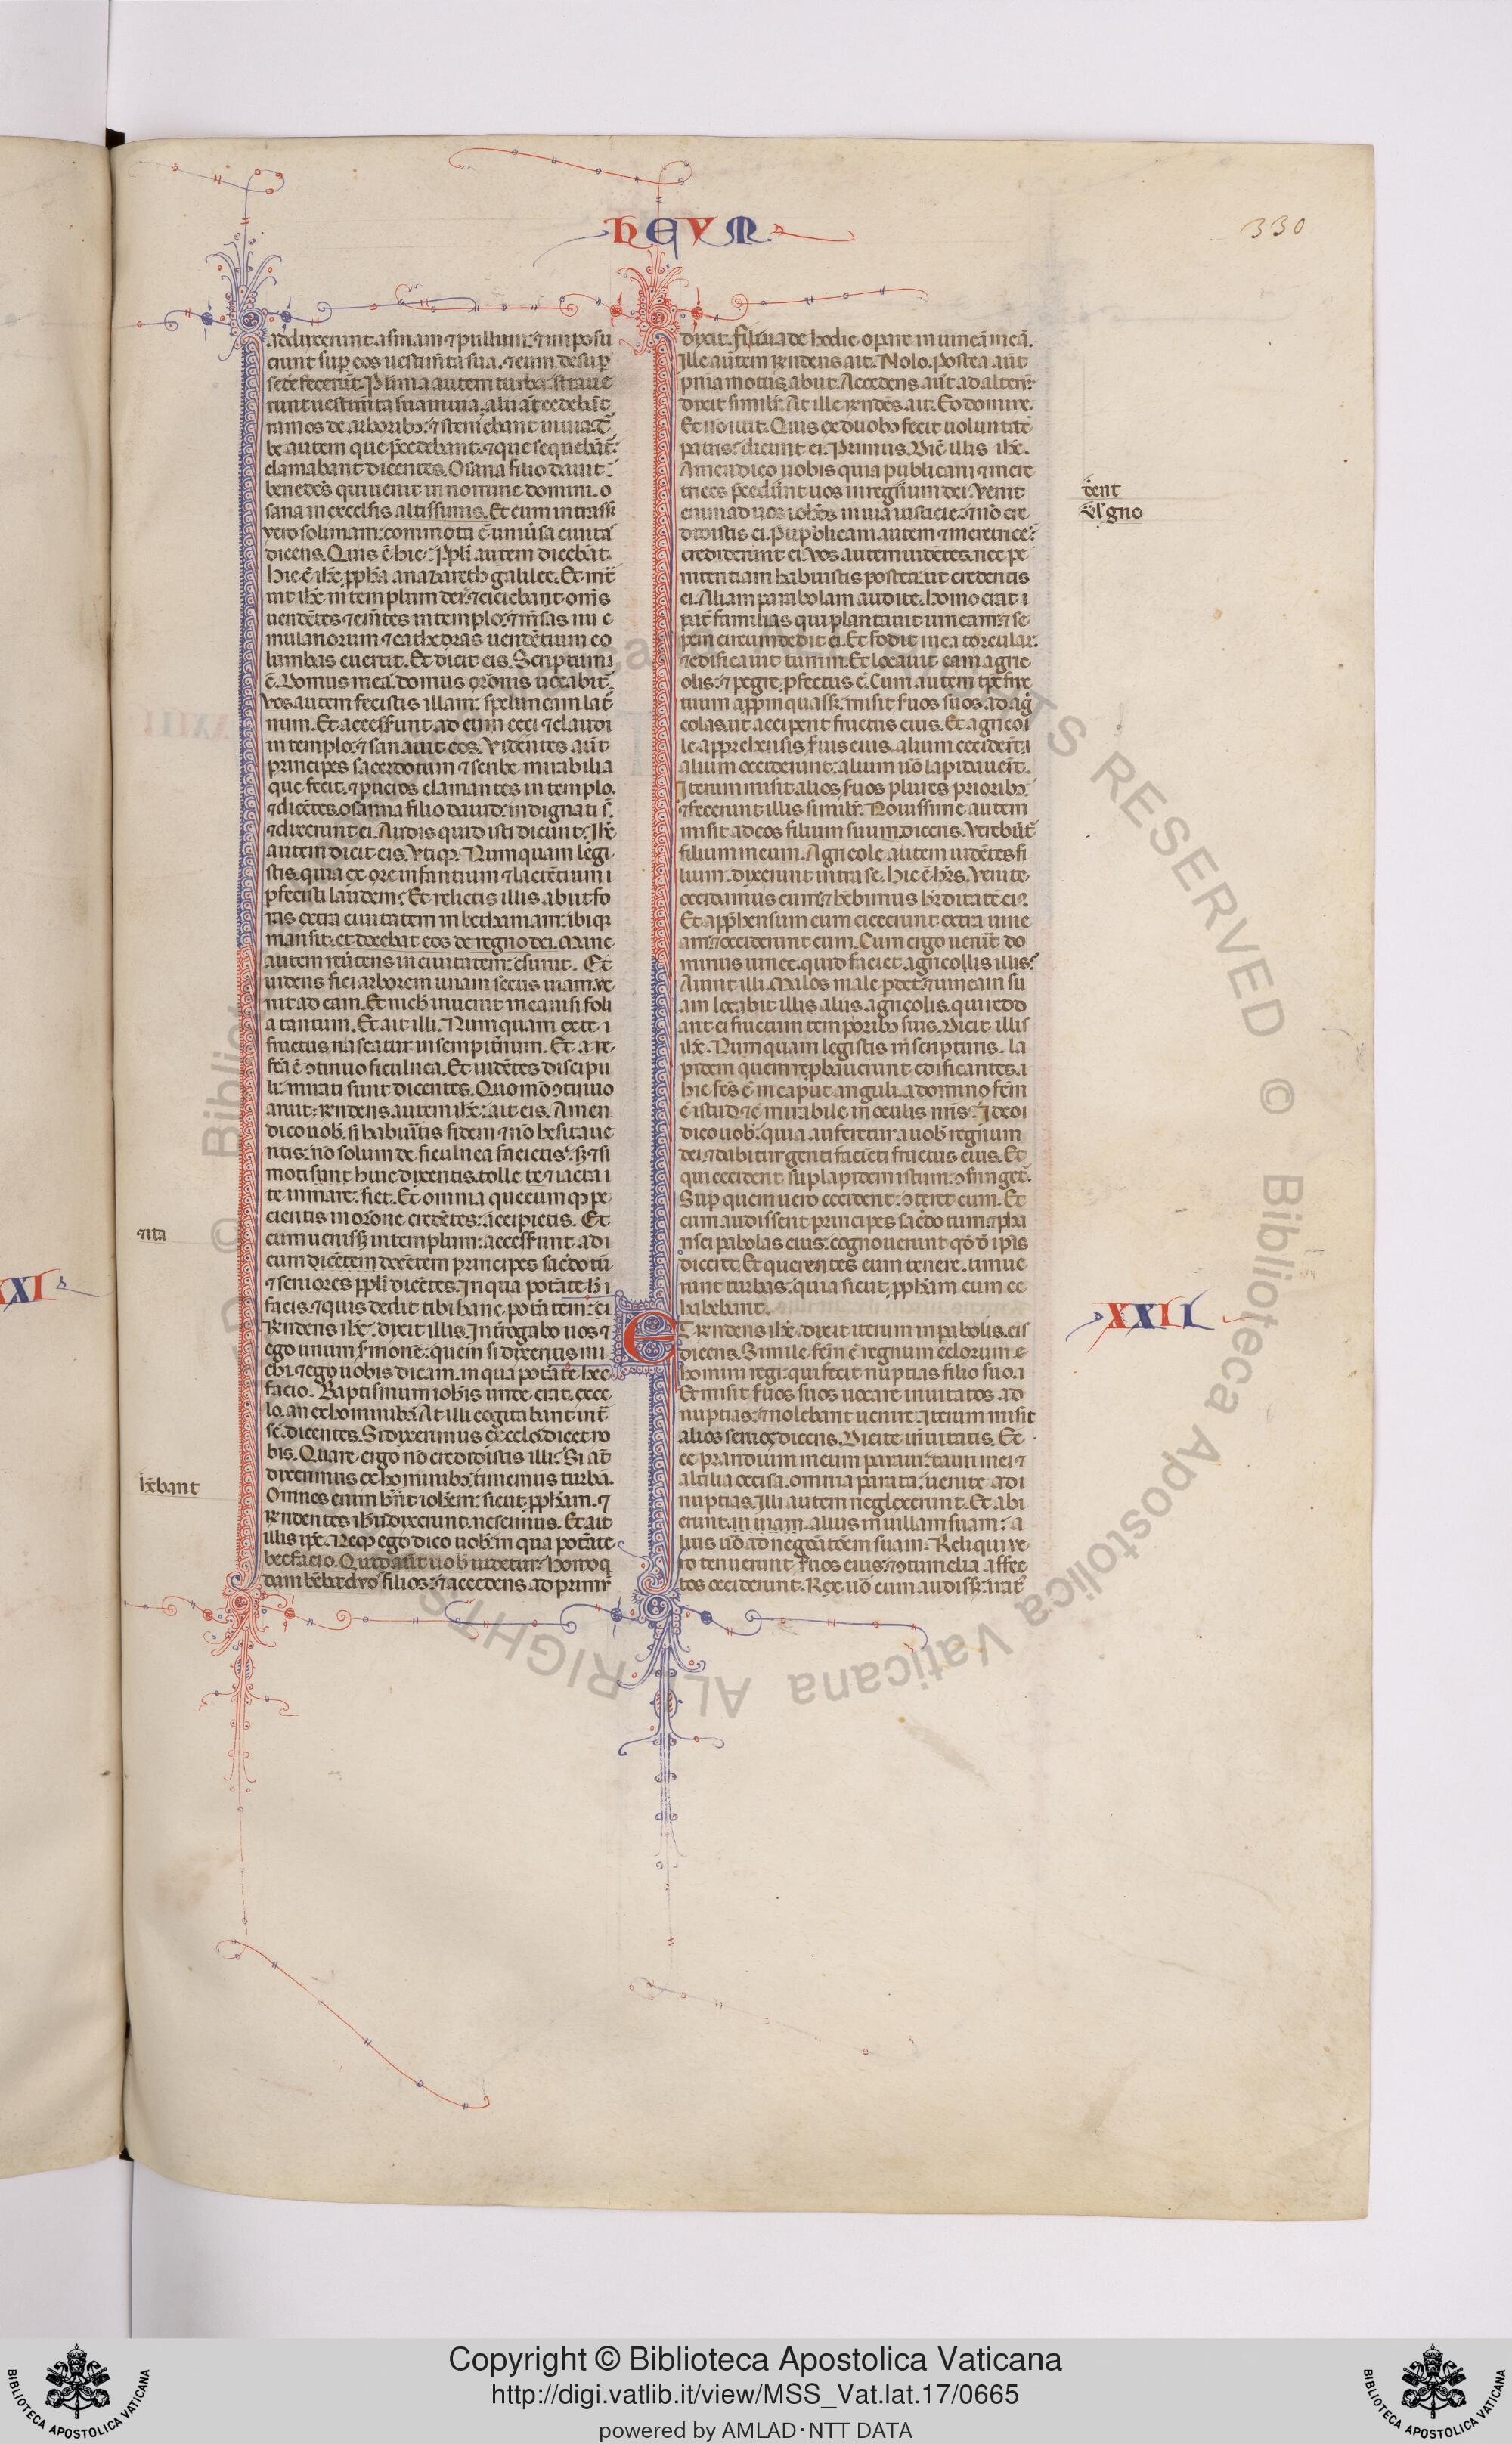 HEVM
330
adduxerunt asinam ⁊ pullum: ⁊ imposu
erunt sup̱ eos uestim̄ta sua. ⁊ eum desup̱
sedē fecer̄t. Plima autem turba straue
runt uestim̄ta sua in uia. alii āt cedebāt
ramos de arboribꝰ: ⁊ sternebant in uia. T̄
be autem que p̄cedebant. ⁊ que sequebāt᷑:
clamabant dicentes. Osana filio dauit:
benedcs̄ qui uenit in nomine domini. o
sana in excelsis altissimis. Et cum intrass᷑
iero solimam: commota ē uniu̓sa ciuita
dicens. Quis ē hic: Ppli autem dicebāt.
hic ē ihc̄ pph̄a a nazareth galilee. Et int̄
uit ihc̄ in templum dei: ⁊ eiciebant om̄s
uendētes ⁊ em̄tes in templo: ⁊ m̄sas nu e
mulariorum ⁊ cathedras uendētium co
lumbas euertit. Et dicit eis. Scriptum i
ē. Domus mea. domus or̄onis uocabit᷑.
Vos autem fecistis illam: speluncam lat̄
num. Et access̓unt ad eum ceci ⁊ claudi
in templo: ⁊ sanauit eos. Videntes aūt
principes sacerdotum ⁊ scribe mirabilia
que fecit. ⁊ pueros clamantes in templo.
⁊ dicētes. osanna filio dauid: indignati s̄.
⁊ dixerunt ei. Audis quid isti dicunt: Ihc̄
autem dicit eis. Vtiqꝫ. Numquam legi
stis. quia ex ore infantium ⁊ lactētium i
p̱fecisti laudem: Et relictis illis abiit fo
ras extra ciuitatem in bethaniam: ibiqꝫ
mansit: et docebat eos de regno dei. Mane
autem reu̓tens in ciuitatem: esuriit. Et
uidens fici arborem unam secus uiam: ue
nit ad eam. Et nich̄ inuenit in ea nisi foli
a tantum. Et ait illi. Numquam ex te i
fructus nascatur in sempit̓num. Et are
fc̄a ē ↄtinuo ficulnea. Et uidētes discipu
li: mirati sunt dicentes. Quomō ↄtinuo
aruit: Rn̄dens autem ihc̄: ait eis. Amen
dico uob̄. si habuitis fidem ⁊ nō hesitaue
ritis: nō solum de ficulnea facietis: sꝫ ⁊ si
moti sunt huic dixeritis. tolle te ⁊ iacta i
te in mare: fiet. Et omnia quecumqꝫ pe
cieritis in or̄one credētes: accipietis. Et
cum uenissꝫ in templum: access̓unt ad i
eum dicētem docētem principes sac̓dotū
⁊ seniores ppli dicētes. In qua potāte h̄ i
facis. ⁊ quis dedit tibi hanc potāt̄em: ei
Rn̄dens ihc̄: dixit illis. Int̓rogabo uos ⁊
ego unum s̓monē: quem si dixeritis mi
chi. ⁊ ego uobis dicam. in qua potāte hec
facio. Baptismum ioh̄is unde erat. ex ce
lo. an ex hominibꝰ. At illi cogitabant int̄
se. dicentes. Si dixerimus ex celo: dicet no
bis. Quare ergo nō credidistis illi: Si āt
dixerimus ex hominibꝰ: timemus turbā.
Omnes enim hn̄t ioh̄em: sicut pph̄am. ⁊
Rn̄dentes ihū: dixerunt. nescimus. Et ait
illis ip̄e. Neqꝫ ego dico uob̄: in qua potāte
hec facio. Quid aūt uob̄ uidetur: homo q
dam hēbat duo filios: ⁊ accedens ad primū
⁊ita
hēbant
dixit. fili uade hodie oparie in uineā meā.
Ille autem rn̄dens ait. Nolo. postea aūt
pn̄ia motus abiit. Accedens aūt ad alterū:
dixit simili᷑. At ille rn̄dēs ait. Eo domine.
Et nō iuit. Quis ex duobꝰ fecit uoluntatē
patris: dicunt ei. Primus. Dic̄ illis ihc̄.
Amen dico uobis quia publicani ⁊ mere
trices p̄cedunt uos in regnum dei. Venit
enim ad uos ioh̄es in uia iusticie: ⁊ nō cre
didistis ei. Puplicani autem ⁊ meretrices
crediderunt ei. Vos autem uidētes. nec pe
nitentiam habuistis postea: ut credentis
ei. Aliam parabolam audite. homo erat i
pat̄ familias qui plantauit uineam: ⁊ se
pem circumdedit ei. Et fodit in ea torcular:
⁊ edificauit turrim. Et locauit eam agric
olis: ⁊ pegre p̱fectus ē. Cum autem tp̄s fruc
tuum app̱inquass᷑: misit s̓uos suos. ad ag̓
colas. ut accip̱ent fructus eius. Et agricol
le app̄rehensis s̓uis eius. alium cecider̄t. i
alium occiderunt: alium uō lapidauer̄t.
Iterum misit alios s̓uos plures prioribꝰ:
⁊ fecerunt illis simili᷑. Nouissime autem
misit ad eos filium suum. dicens. Verebūt᷑
filium meum. Agricole autem uidētes fi
lium: dixerunt intra se. hic ē hr̄s. Venite
occidamus eum: ⁊ hēbimus hr̄ditatē ei.
Et app̄hensum eum eiecerunt extra uine
am: ⁊ occiderunt eum. Cum ergo uen̄it do
minus uinee. quid faciet agricollis illis:
Aiunt illi. Malos male p̱det: ⁊ uineam su
am locabit illis aliis agricolis. qui redd
ant ei fructum temporibꝰ suis. Dicit illis
ihc̄. Numquam legistis in scripturis. la
pidem quem rep̱bauerunt edificantes. i
hic fc̄s ē in caput anguli. a domino fc̄m
ē istud. ⁊ ē mirabile in oculis nr̄is: Ideo i
dico uob̄: quia auferetur a uob̄ regnum
dei. ⁊ dabitur genti faciēti fructus eius. Et
qui cecident sup lapidem istum: ↄfringet᷑.
Sup quem uero cecident: ↄteret eum. Et
cum audissent principes sac̓do tum ⁊ pha
risei pabolas eius: cognouerunt qd̄ d̄ ip̄is
diceret. Et querentes eum tenere. timue
runt turbas: quia sicut pph̄am eum ee
habebant.
ET Rn̄dens ihc̄. dixit iterum in pabolis. eis
dicens. Simile fc̄m ē regnum celorum e
homini regi: qui fecit nuptias filio suo. i
Et misit s̓uos suos uocare inuitatos. ad
nuptias: ⁊ nolebant uenire. Iterum misit
alios seruos dicens. Dicite inuitatis. Ec
ce prandium meum paraui: tauri mei ⁊
altilia occisa. omnia parata: uenite ad i
nuptias. Illi autem neglexerunt. Et abi
erunt. in uiam. alius in uillam suam: a
lius uō ad negotiatōem suam. Reliqui ue
ro tenuerunt s̓uos eius: ⁊ ↄtumelia affec
tos occiderunt. Rex uō cum audiss᷑: irat᷑
dent
ul̓ gno
XXII
XXI
Copyright © Biblioteca Apostolica Vaticana
http://digi.vatlib.it/view/MSS_Vat.lat.17/0665
powered by AMLAD·NTT DATA
BIBLIOTECA APOSTOLICA VATICANA
BIBLIOTECA APOSTOLICA VATICANA